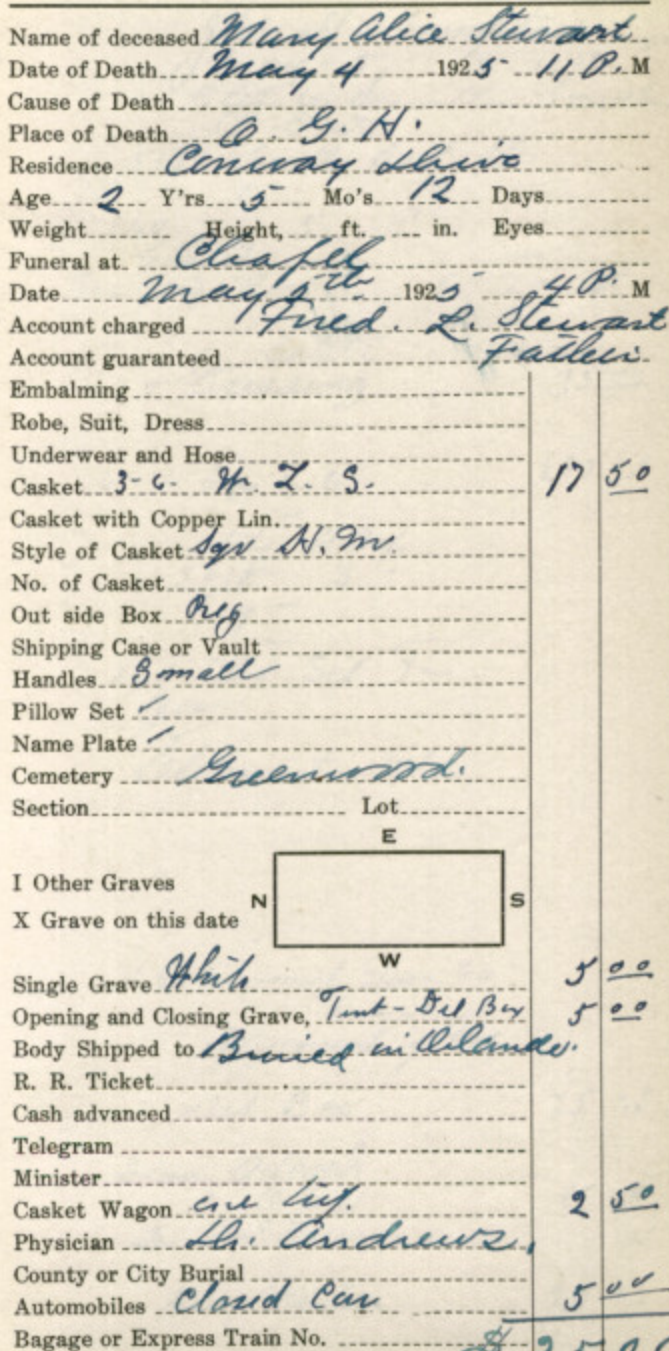 Name of deceased Mary Alice Stewart
Date of Death May 4 1925 11 P. M
Cause of Death
Place of Death O. G. H.
Residence Conway Drive
Age 2 Y'rs 5 Mo's 12 Days
Weight Height, ft. in. Eyes
Funeral at Chapel
Date May 5th 1925 4 P. M
Account charged Fred. L. Stewart
Account guaranteed Father
Embalming
Robe, Suit, Dress
Underwear and Hose
Casket 3-6- W. L. S. 17 50
Casket with Copper Lin.
Style of Casket Sqr H. M.
No. of Casket
Out side Box Reg
Shipping Case or Vault
Handles Small
Pillow Set ✓
Name Plate ✓
Cemetery Greenwood.
Section Lot
E
I Other Graves
N S
X Grave on this date
W
Single Grave White 5 00
Opening and Closing Grave, Tent - Del Box 5 00
Body Shipped to Buried in Orlando.
R. R. Ticket
Cash advanced
Telegram
Minister
Casket Wagon one 2 50
Physician Dr. Andrews.
County or City Burial
Automobiles Closed Car 5 00
Bagage or Express Train No. $